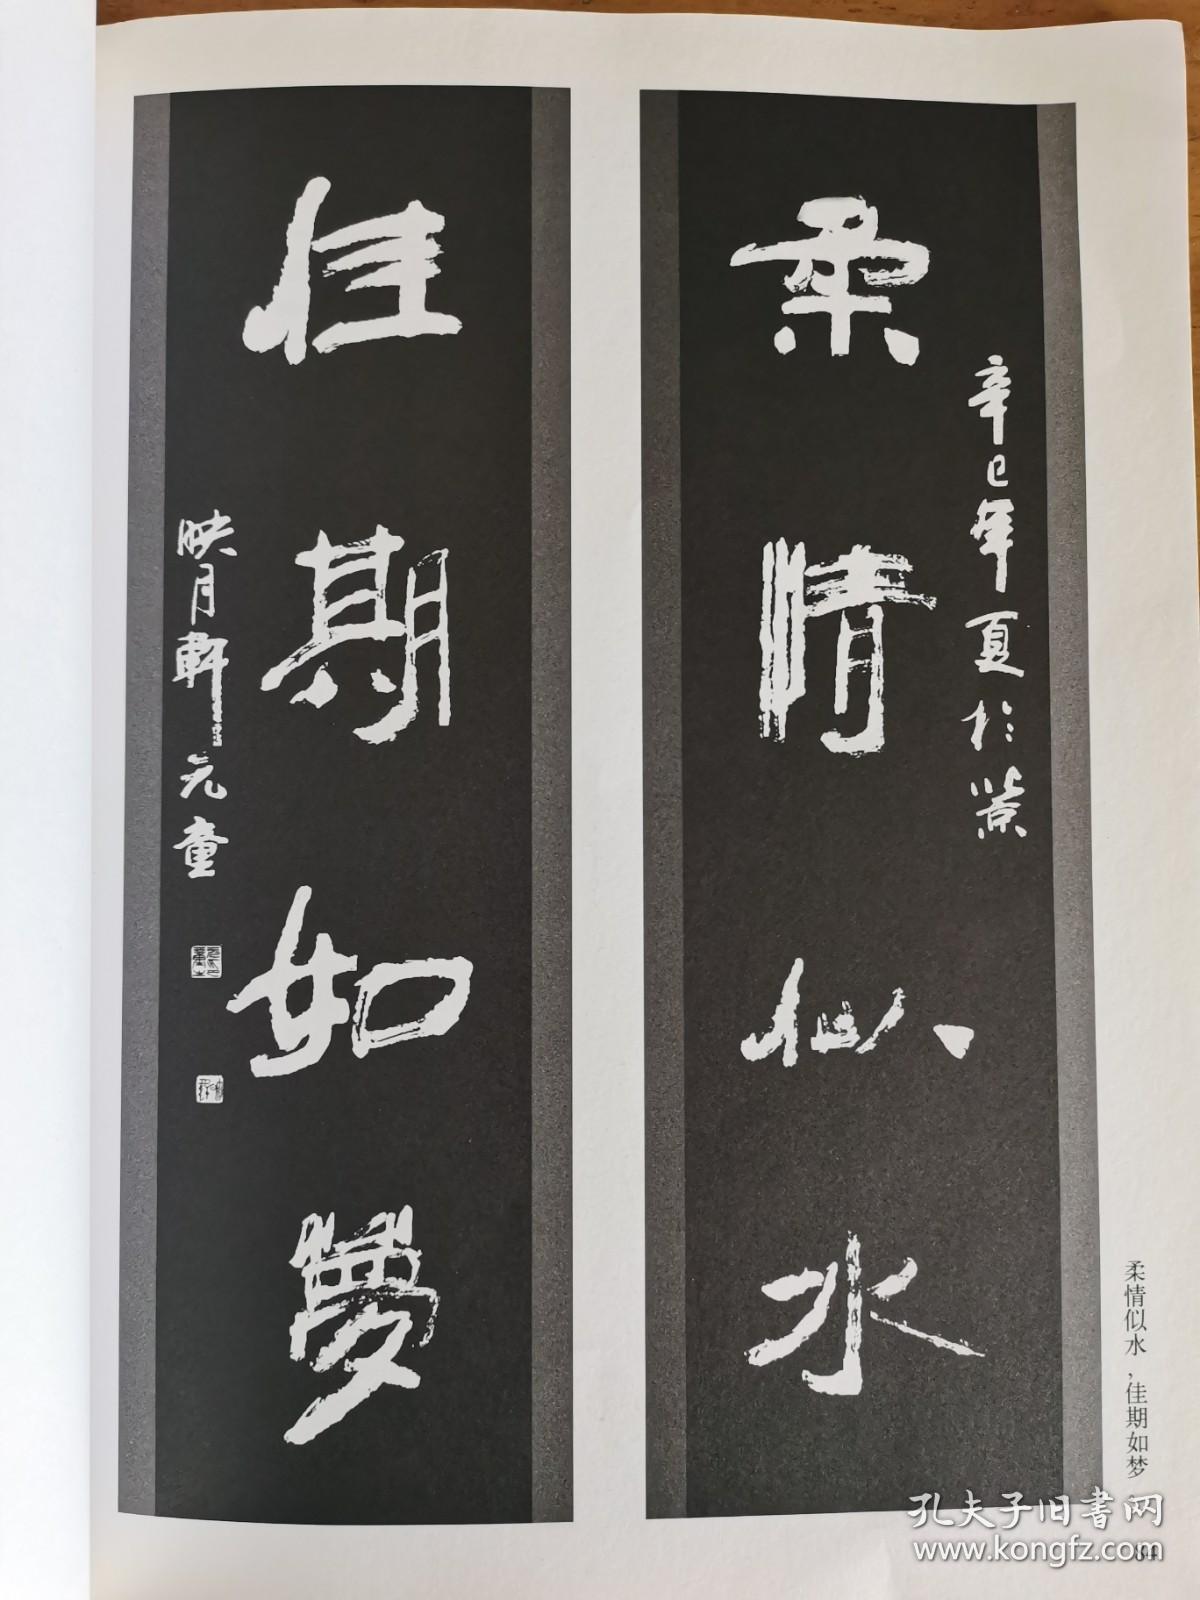 柔情似水
辛巳年夏於紫
佳期如夢
映月軒元童
柔情似水,佳期如梦
84
孔夫子旧书网
www.kongfz.com